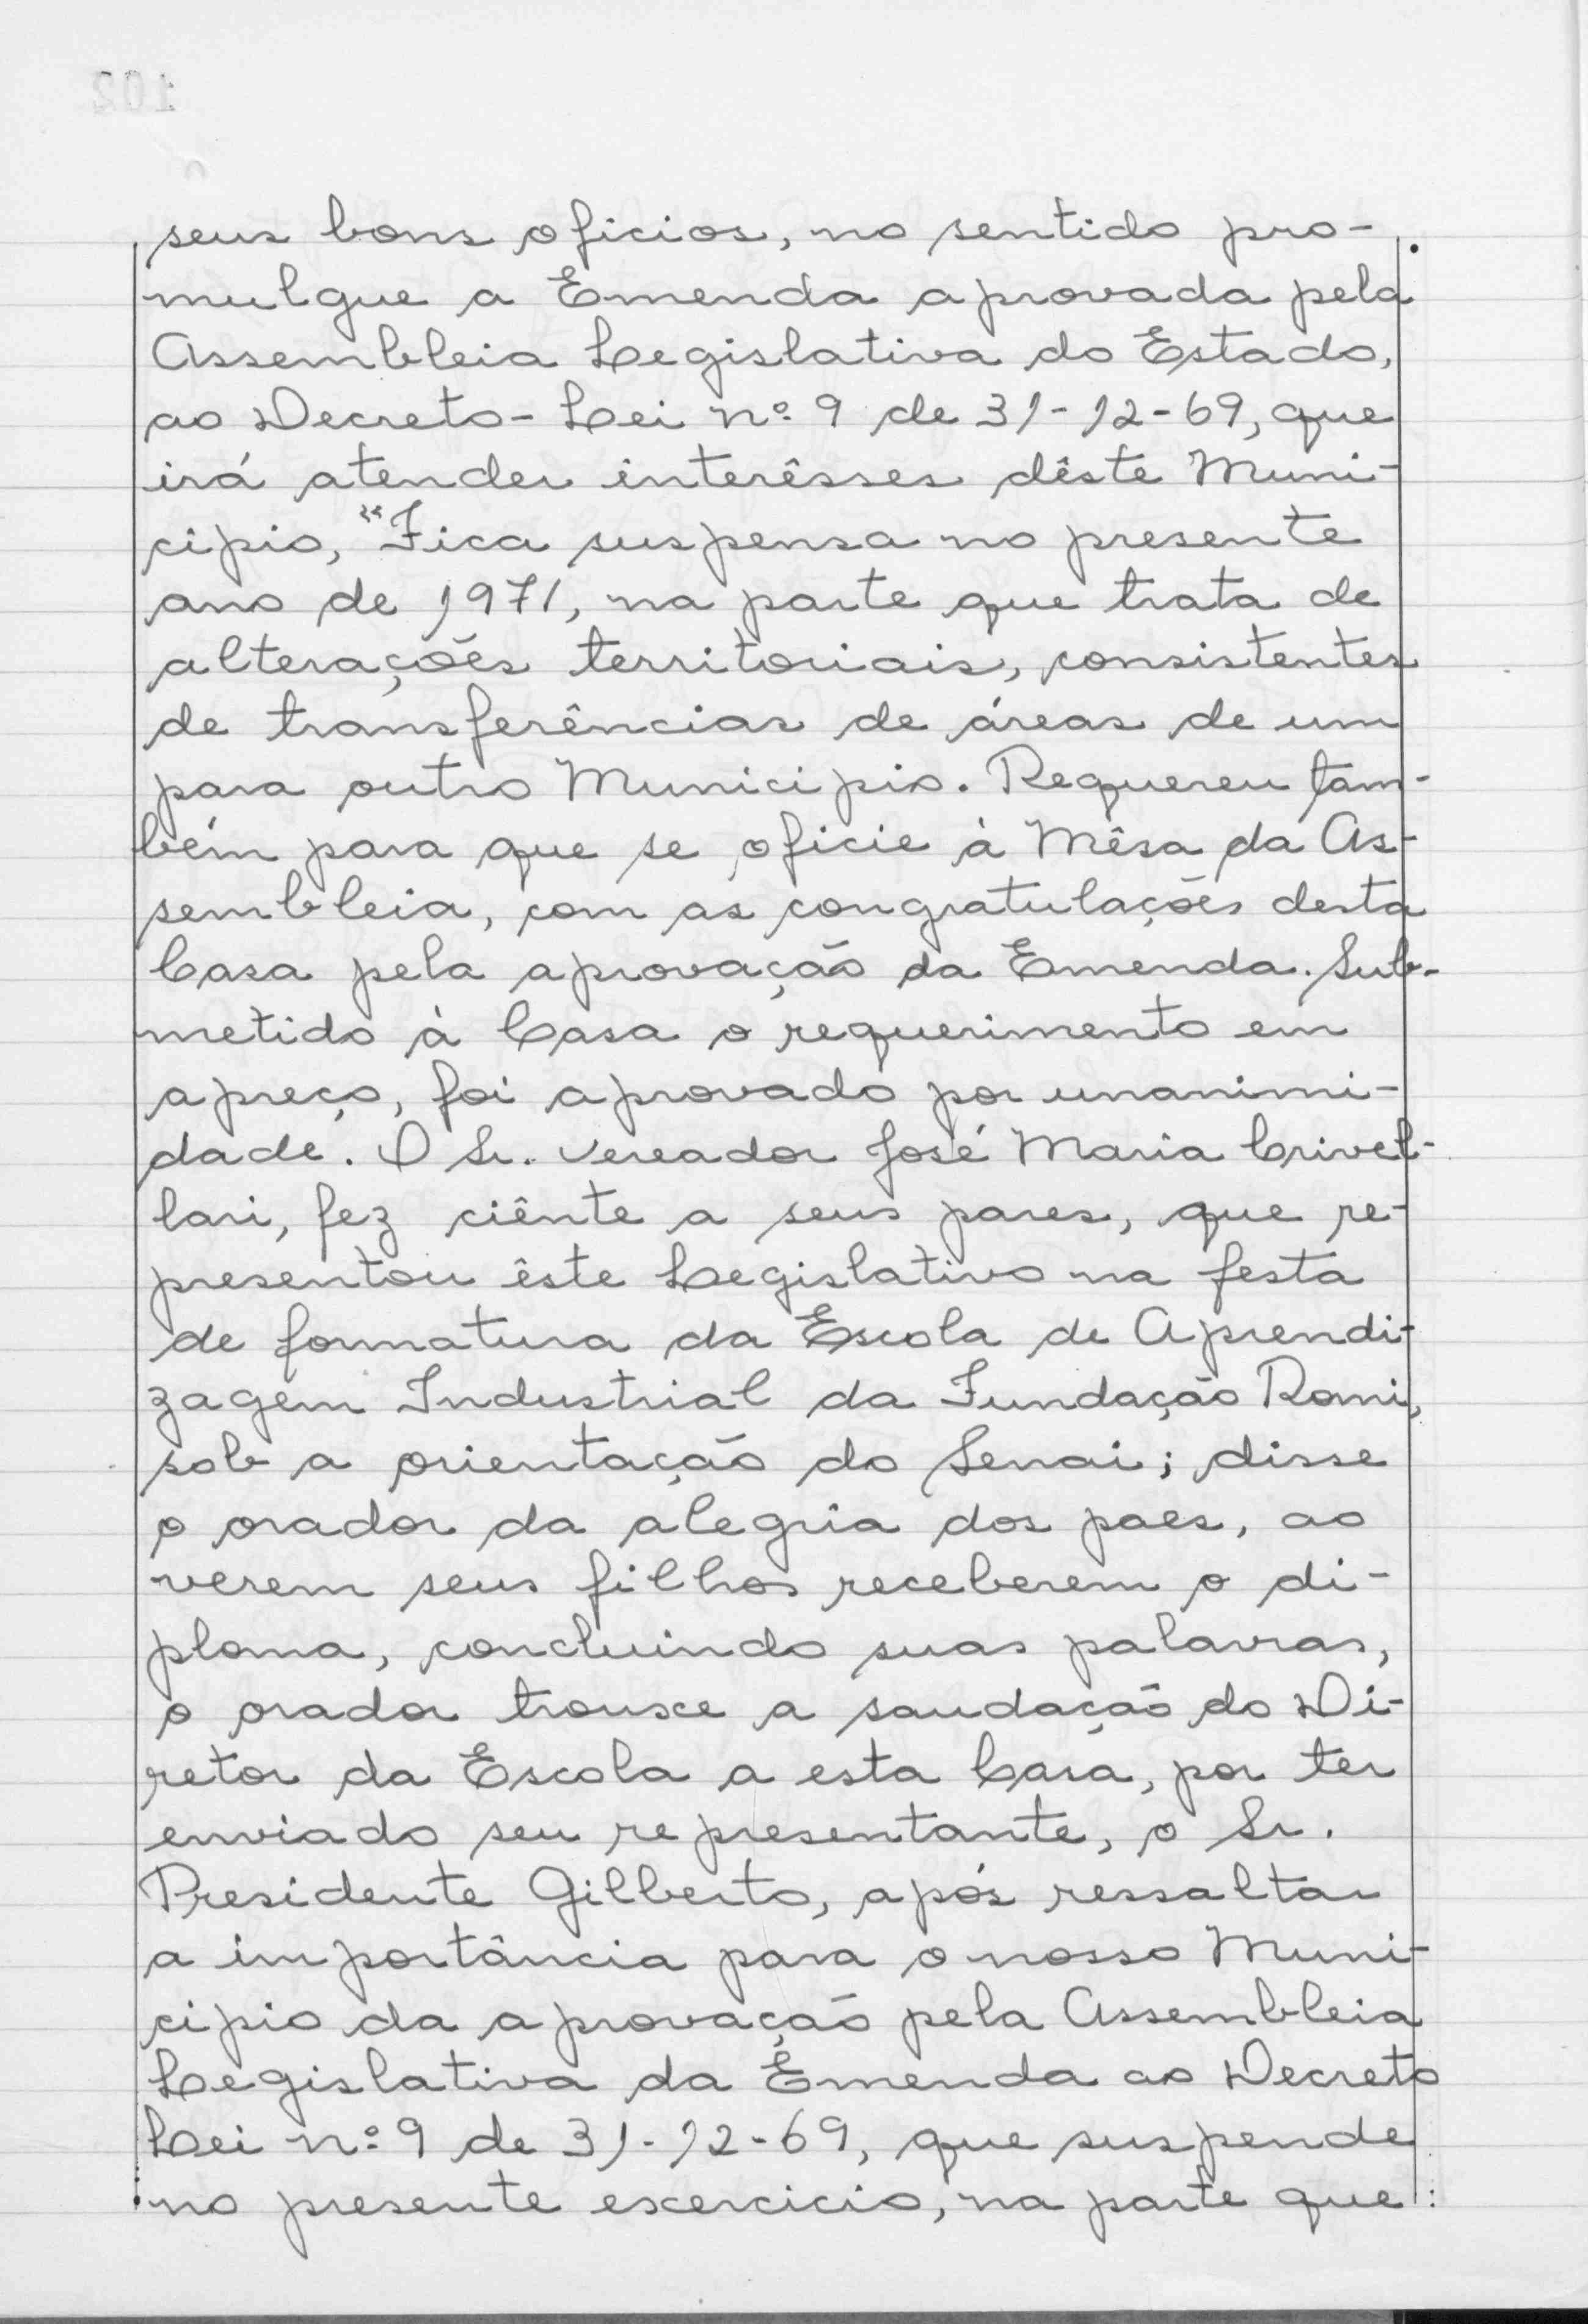 102
seus bons oficios, no sentido pro-
mulgue a Emenda aprovada pela
Assembleia Legislativa do Estado,
ao Decreto-Lei nº 9 de 31-12-69, que
irá atender interêsses dêste Muni-
cipio, "Fica suspensa no presente
ano de 1971, na parte que trata de
alterações territoriais, consistentes
de transferências de áreas de um
para outro Municipio. Requereu tam-
bém para que se oficie à Mêsa da As-
sembleia, com as congratulações desta
Casa pela aprovação da Emenda. Sub-
metido à Casa o requerimento em
apreço, foi aprovado por unanimi-
dade. O Sr. Vereador José Maria Crivel-
lari, fez ciênte a seus pares, que re-
presentou êste Legislativo na festa
de formatura da Escola de Aprendi-
zagem Industrial da Fundação Romi,
sob a orientação do Senai; disse
o orador da alegria dos paes, ao
verem seus filhos receberem o di-
ploma, concluindo suas palavras,
o orador trouxe a saudação do Di-
retor da Escola a esta Casa, por ter
enviado seu representante, o Sr.
Presidente Gilberto, após ressaltar
a importância para o nosso Muni-
cipio da aprovação pela Assembleia
Legislativa da Emenda ao Decreto
Lei nº 9 de 31-12-69, que suspende
no presente exercicio, na parte que